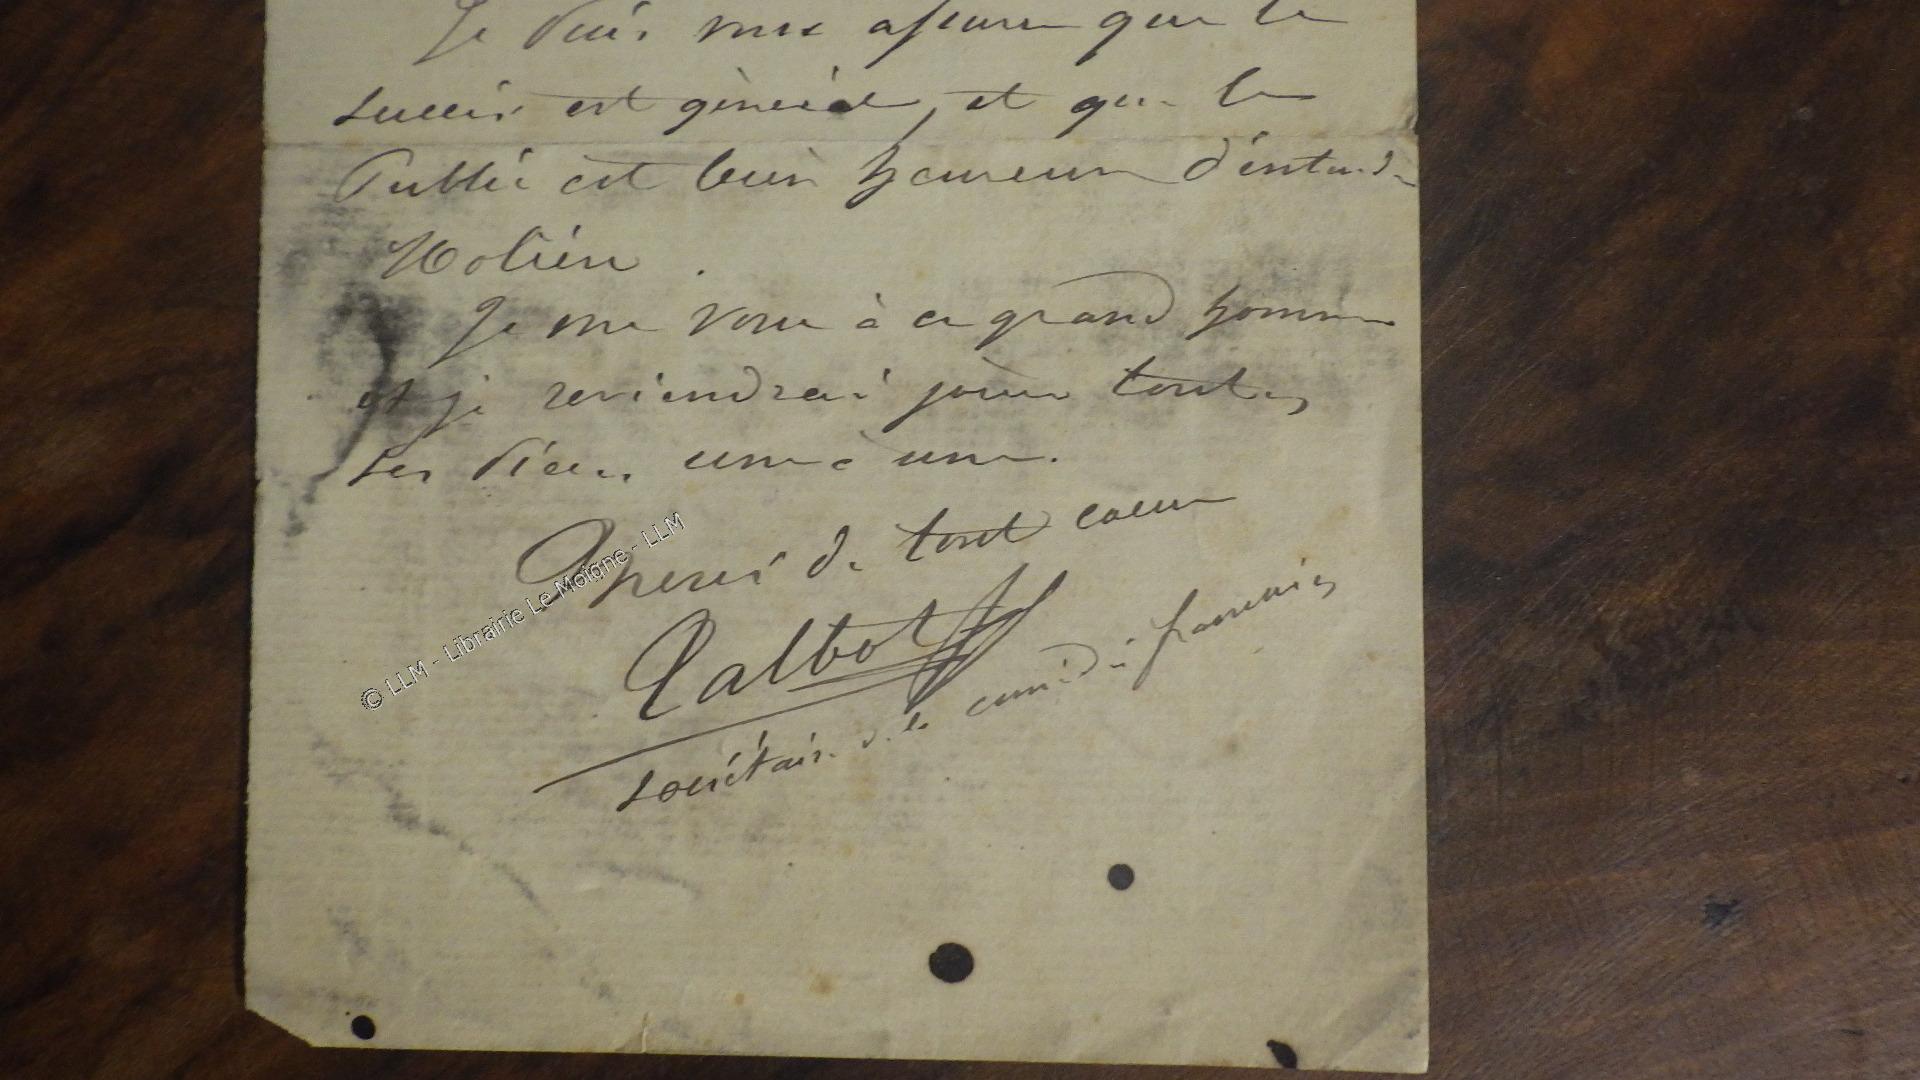 Je puis vous assurer que le
succès est général, et que le
Public est bien heureux d'entendre
Molière.
Je me voue à ce grand homme
et je reviendrai jouer toutes
ses pièces une à une.
de tout coeur
Talbot
sociétaire de la comédie française
© LLM - Librairie Le Moigne - LLM